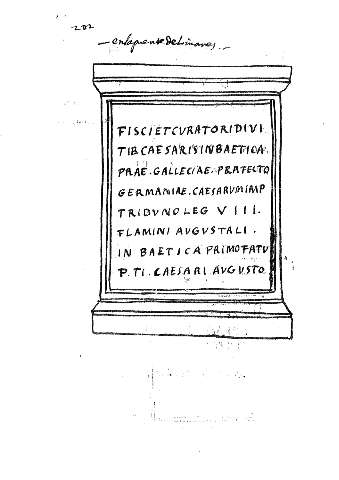 202
en la puente de Linares
FISCI ET CURATORI DIVI
TIB CAESARIS IN BAETICA.
PRAE. GALLECIAE. PRAEFECTO
GERMANIAE. CAESARUM IMP
TRIBUNO LEG VIII.
FLAMINI AUGUSTALI.
IN BAETICA PRIMO FATU
P. TI. CAESARI AUGUSTO